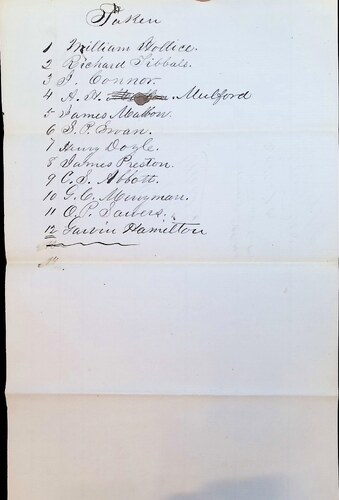 Taken
1 William Hollice.
2 Richard Tibbals.
3 T. Connor.
4 A. H. Mulford
5 James Mabbon.
6 S. P. Ewan.
7 Henry Doyle.
8 James Preston.
9 C. S. Abbott.
10 G. C. Merryman.
11 O. P. Sawers.
12 Garvin Hamilton